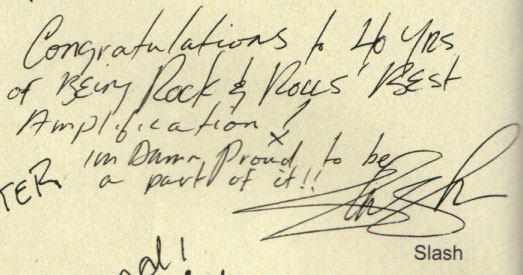 Congratulations to 40 yrs
of Being Rock & Rolls' Best
Amplification!
im Damn Proud to be
a part of it!!
TER
Slash
Slash